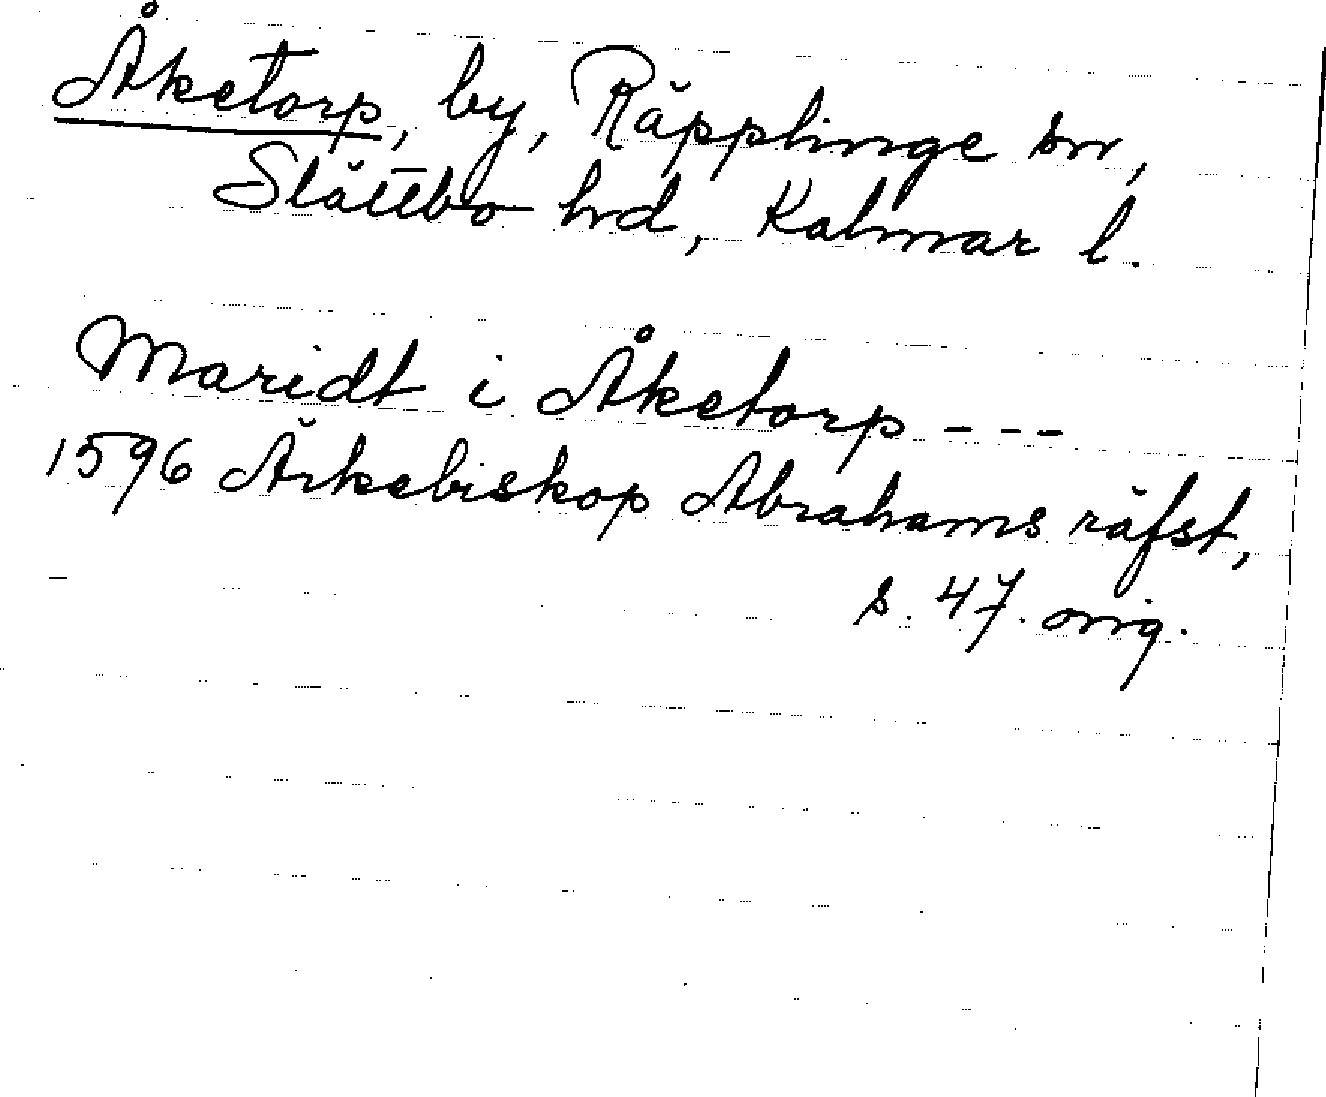 Åketorp, by, Räpplinge sn,
Slättbo hrd, Kalmar l.
Maridt i Åketorp ---
1596 Ärkebiskop Abrahams räfst,
s. 47. orig.